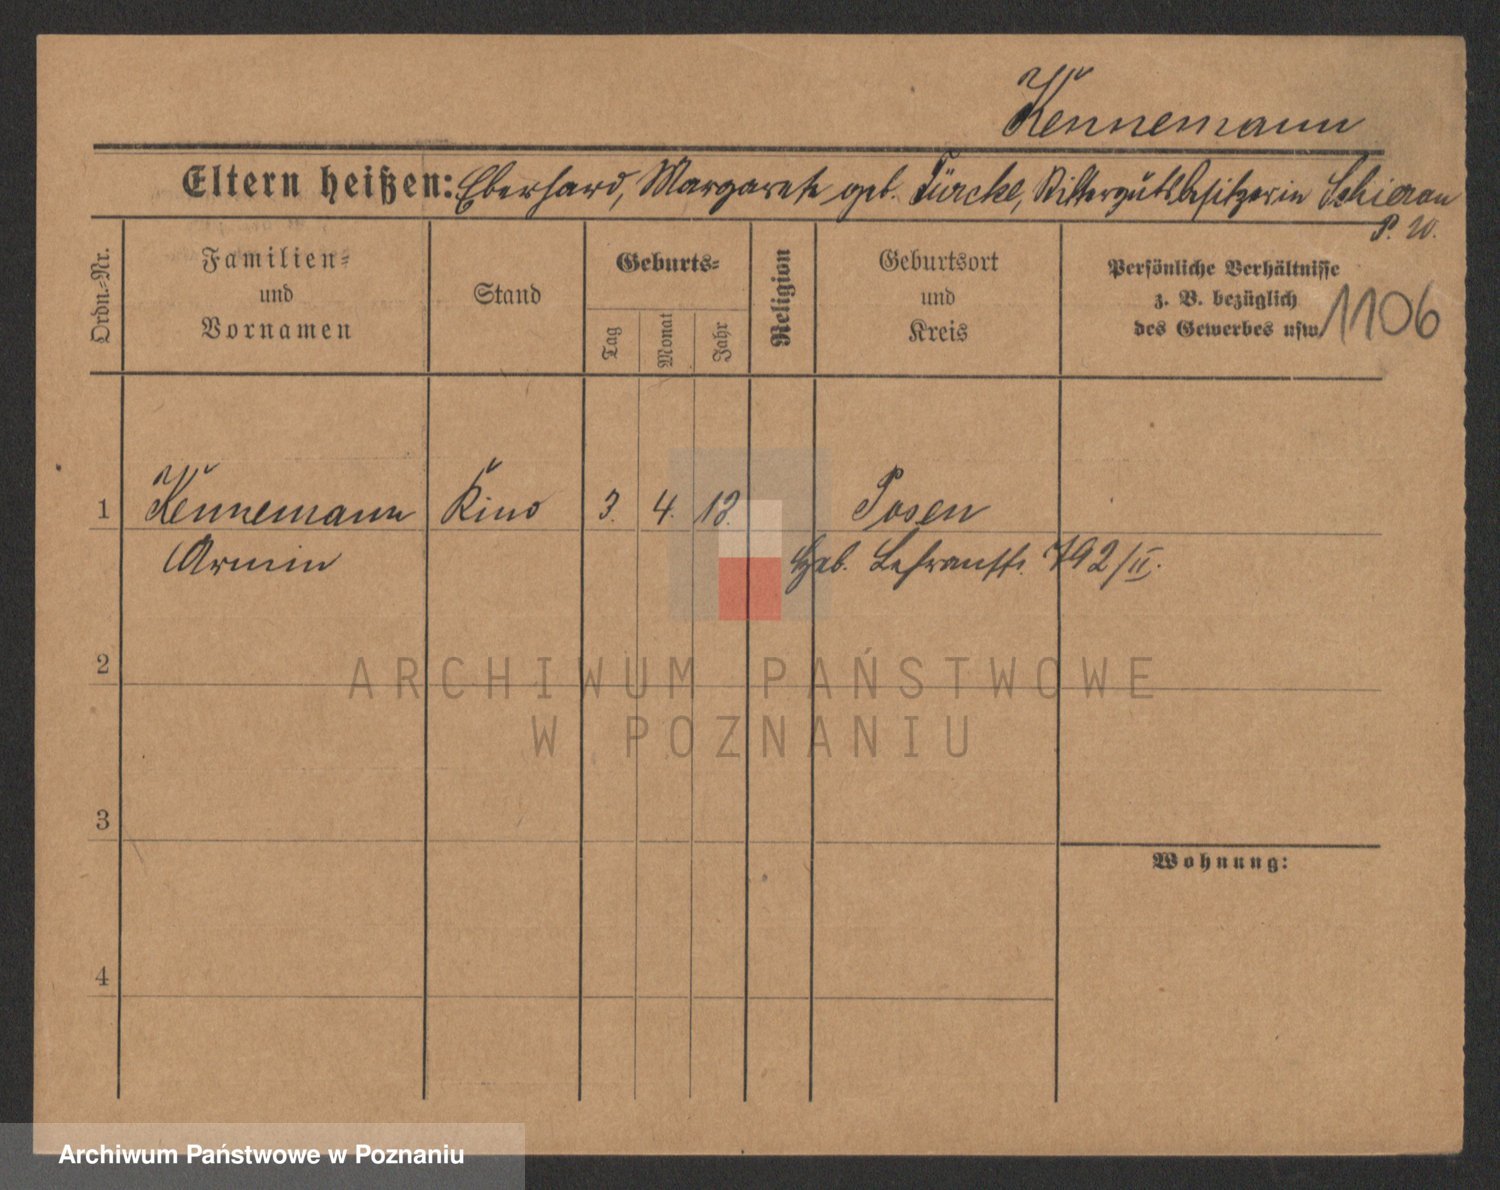 Kennemann
Eltern heißen: Eberhard, Margarete geb. Türcke, Rittergutsbesitzerin
P. W.
Ordn.=Nr.
Familien=
und
Vornamen
Stand
Geburts=
Tag
Monat
Jahr
Religion
Geburtsort
und
Kreis
Persönliche Verhältnisse
z. B. bezüglich
des Gewerbes usw.
1106
1 Kennemann Kind 3. 4. 13. Posen
Armin
Geb. 792/II.
2
3
Wohnung:
4
ARCHIWUM PAŃSTWOWE
W POZNANIU
Archiwum Państwowe w Poznaniu